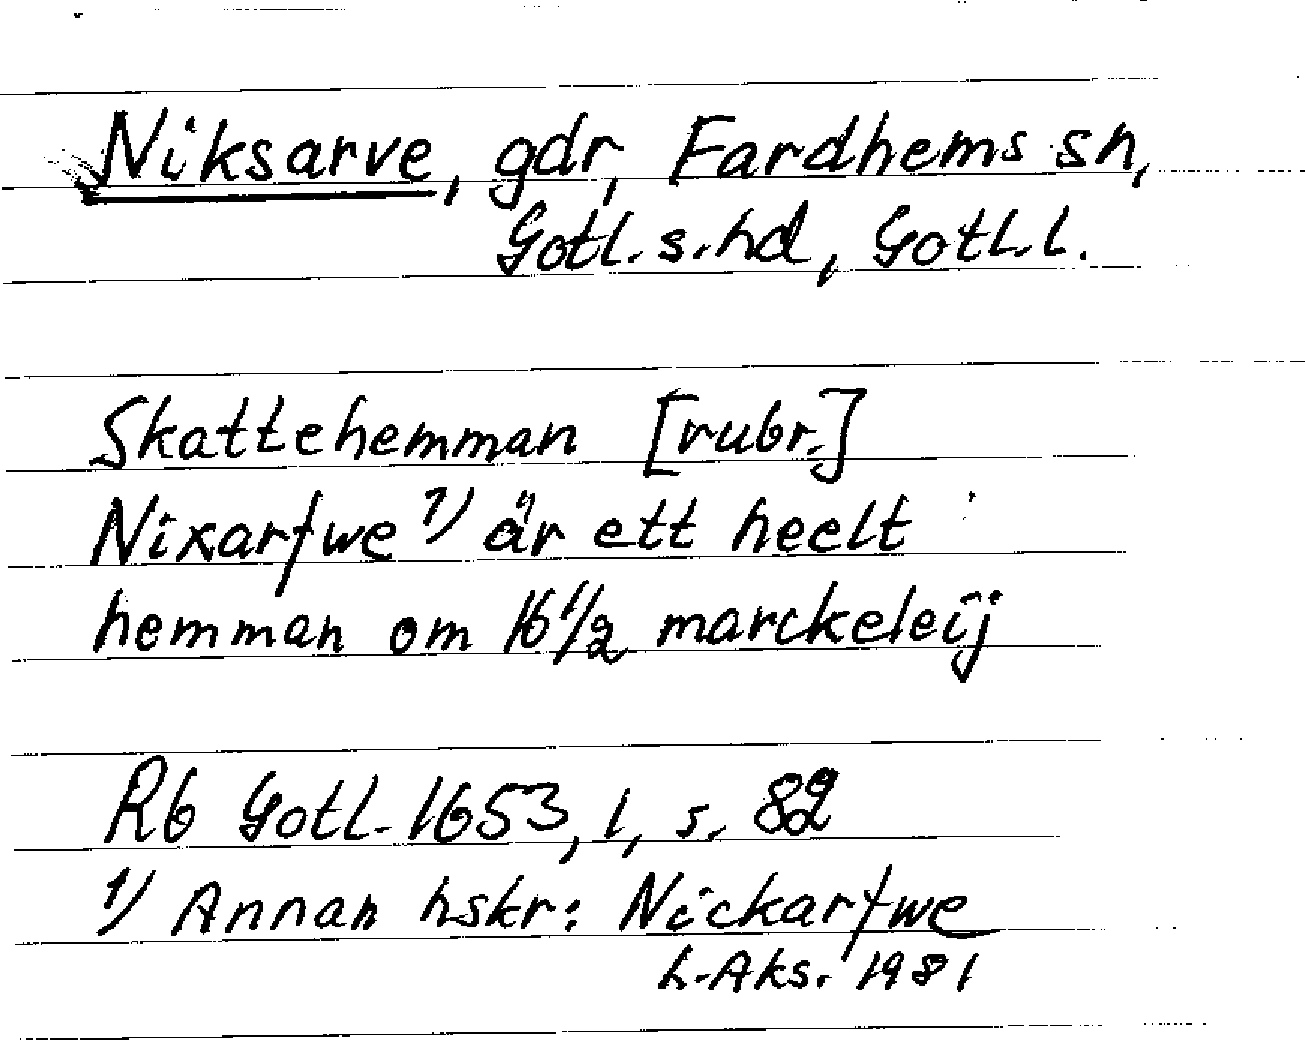 Niksarve, gdr, Fardhems sn,
Gotl. s. hd, Gotl. l.
Skattehemman [rubr.]
Nixarfwe 1) är ett heelt
hemman om 16 1/2 marckeleij
Rb Gotl. 1653, 1, s. 82
1) Annan hskr: Nickarfwe
L. Aks. 1981